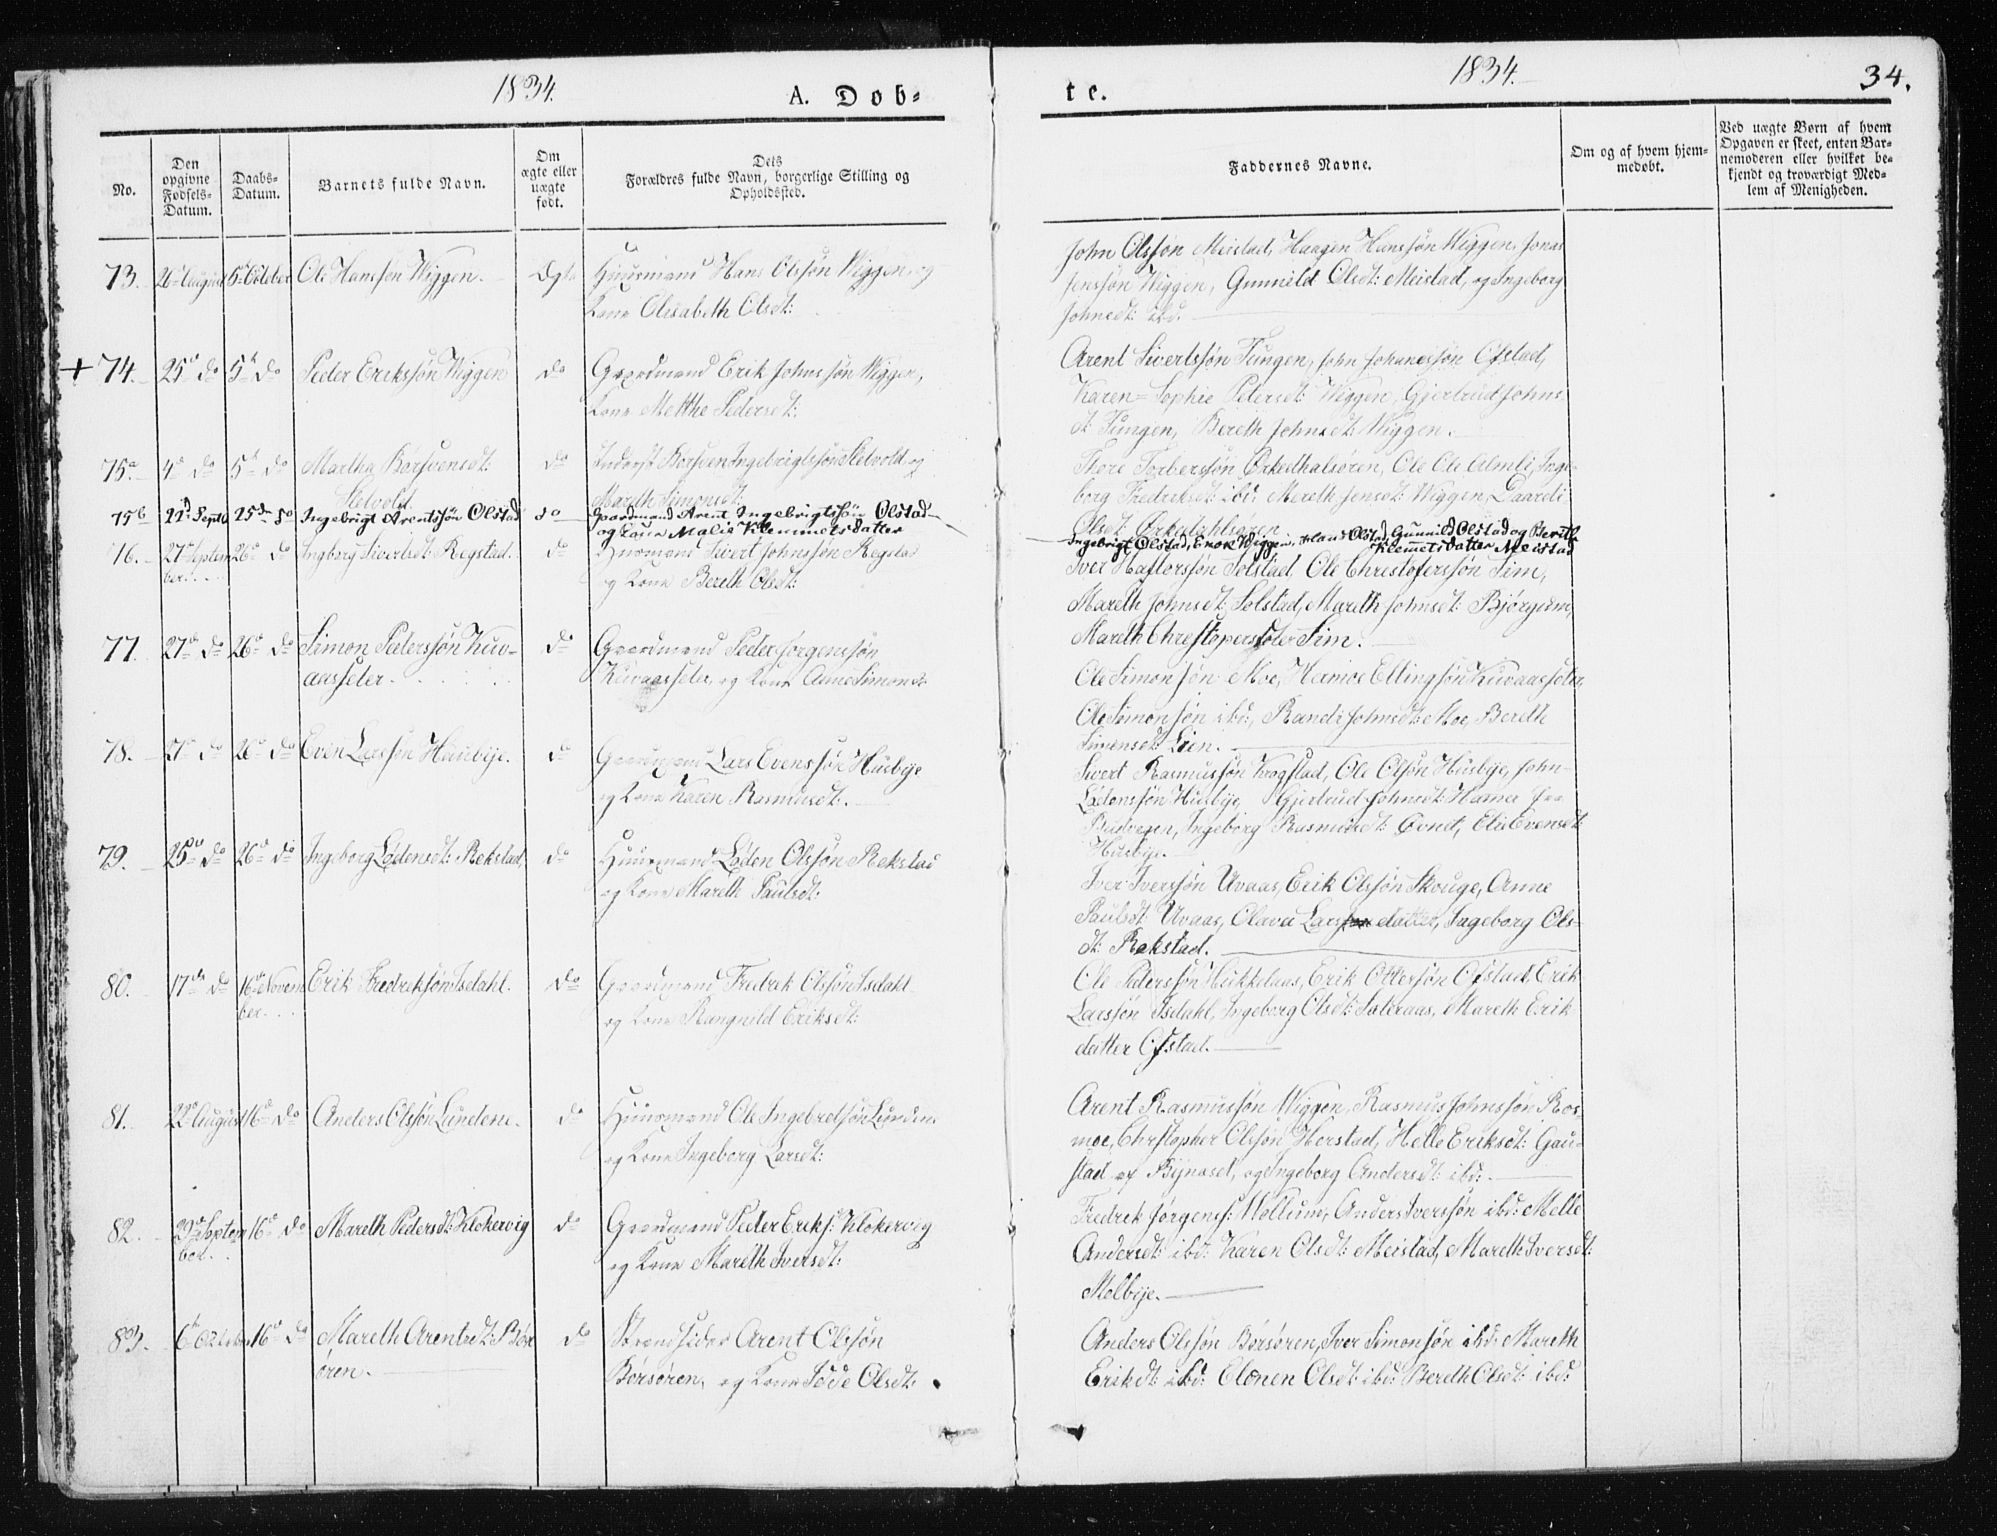 1834.
A. Døb-
te.
1834.
34.
No.
Den opgivne Fødsels-Datum.
Daabs-Datum.
Barnets fulde Navn.
Om ægte eller uægte født.
Dets Forældres fulde Navn, borgerlige Stilling og Opholdssted.
Faddernes Navne.
Om og af hvem hjem-medøbt.
Ved uægte Børn af hvem Opgaven er skeet, enten Bar-nemoderen eller hvilket be-kjendt og troværdigt Med-lem af Menigheden.
73. 26 August 5 October Ole Hanssøn Wiggen. Ægte Huusmand Hans Olssøn Wiggen, og
Kone Olisabeth Olsdt:
John Olssøn Meistad, Haagen Hanssøn Wiggen, Jonas
Jenssøn Wiggen, Gunnild Olsdt: Meistad, og Ingeborg
Johnsdt: ibd.
+ 74. 25 do 5 do Peder Erikssøn Wiggen do Gaardmand Erik Johnssøn Wiggen,
Kone Metthe Pedersdt:
Arent Sivertssøn Tungen, John Johanessøn Ofstad,
Karen-Sophie Petersdt: Wiggen, Gjertrud Johns
dt. Tungen, Bereth Johnsdt: Wiggen.
75a 4 do 5 do Martha Børsvensdt: do Inderst Børsven Ingebrigtssøn Sletvold og
Sletvold Mareth Simonsdt:
Thore Torberssøn Ørkedhalsøren, Ole Ole Almli, Inge-
borg Fredriksdt: ibd: Mereth Jensdt: Wiggen, Daardi
Olsdt: Ørkedahlsøren
75b 21d Septb 25de do Ingebrigt Arentssøn Olstad do Gaardmand Arent Ingebrigtssøn Olstad
og Kone Malie Klemmetsdatter
Ingebrigt Olstad, Enok Wiggen, Olstad, Gunnild Olstad og Berith
Klemetsdatter Meistad
76. 27 Septem 26 do Ingborg Sivertsdt: Regstad. do Huusmand Sivert Johnssøn Regstad
ber. og Kone Bereth Olsdt:
Iver Haftorssøn Solstad, Ole Christofersøn Sim,
Mareth Johnsdt: Solstad, Mareth Johnsdt: Bjørgum,
Mareth Christopersdter Sim.
77. 27de do 26 do Simon Pederssøn Kuv- do Gaardmand Peder Jørgenssøn
aasseter. Kuvaasseter, og Kone Anne Simonsdt
Ole Simonsøn Moe, Hermoe Ellingsøn Kuvaasseter,
Ole Simonsøn ibd:, Randi Johnsdt: Moe, Bereth
Simensdt: Lien.
78. 27 do 26 do Even Larssøn Huusbye. do Gaardmand Lars Evenssøn Husbye
og Kone Karen Rasmusdt.
Sivert Rasmussøn Krogstad, Ole Olsøn Husbye, John
Lødenssøn Husbye, Gjertrud Johnsdt: Hamer fra
Budvegen, Ingeborg Rasmusdt: Øvnet, Eli Evensdt
Husbye.
79. 25 do 26 do Ingeborg Lødensdt: Rekstad. do Huusmand Løden Olssøn Rekstad
og Kone Mareth Paulsdt:
Iver Iverssøn Uvaas, Erik Olssøn Skouge, Anne
Paulsdt: Uvaas, Olava Larsdatter, Ingeborg Ols-
dt: Rekstad.
80. 17de do 16 Novem Erik Fredriksøn Isdahl. do Gaardmand Fredrik Olssøn Isdahl
ber. og Kone Rangnild Eriksdt:
Ole Pederssøn Hukkelaas, Erik Ottersøn Ofstad, Erik
Larssøn Isdahl, Ingeborg Olsdt: Sæteraas, Mareth Erik
datter Ofstad.
81. 22 August 16 do Anders Olssøn Lundene. do Huusmand Ole Ingebretsøn Lunden
og Kone Ingeborg Larsdt:
Arent Rasmussøn Wiggen, Rasmus Johnssøn Ros-
moe, Christopher Olssøn Herstad, Helle Eriksdt: Gau-
stad af Bynæset, og Ingeborg Andersdt: ibd:.
82. 29 Septem 16 do Mareth Pedersdt: Klokervig do Gaardmand Peder Eriks: Klokervig
ber. og Kone Mareth Iversdt:
Fredrik Jørgens: Mellum, Anders Iverssøn ibd: Melle
Andersdt: ibd: Karen Olsdt: Meistad, Mareth Iversdt:
Melbye.
83. 6 October 16 do Mareth Arentsdt: Børs do Strandsidder Arent Olssøn
øren. Børsøren, og Kone Føde Olsdt:
Anders Olssøn Børsøren, Iver Simonsøn ibd: Mareth
Eriksdt: ibd: Olonen Olsdt: ibd: Bereth Olsdt: ibd: